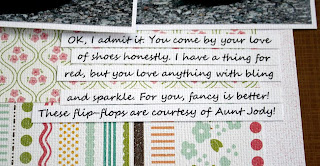 OK, I admit it. You come by your love
of shoes honestly. I have a thing for
red, but you love anything with bling
and sparkle. For you, fancy is better!
These flip-flops are courtesy of Aunt Jody!